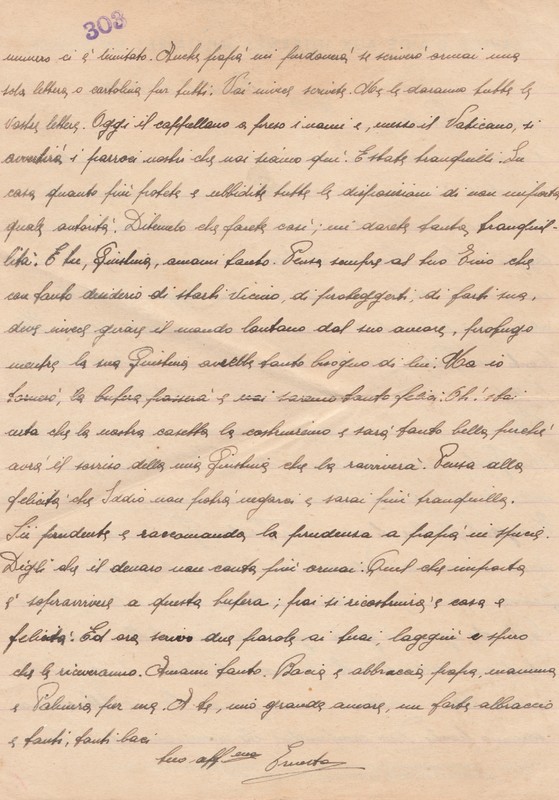 303
numero ci è limitato. Anche papà mi perdonerà se scriverò ormai una
sola lettera o cartolina per tutti. Voi invece scrivete. Me le daranno tutte le
vostre lettere. Oggi il cappellano a preso i nomi e, messo il Vaticano, si
avvertirà i parroci nostri che noi siamo qui. E state tranquilli. In
casa quanto più potete e ubbidite tutte le disposizioni di non importa
quale autorità. Ditemelo che farete così; mi darete tanta tranquil-
lità. E tu, Giustina, amami tanto. Pensa sempre al tuo Erno che
con tanto desiderio di starti vicino, di proteggerti, di farti sua,
deve invece girare il mondo lontano dal suo amore, profugo
mentre la sua Giustina avrebbe tanto bisogno di lui. Ma io
tornerò, la bufera passerà e noi saremo tanto felici. Oh! stai
certa che la nostra casetta la costruiremo e sarà tanto bella perché
avrà il sorriso della mia Giustina che la ravviverà. Pensa alla
felicità che Iddio non potrà negarci e sarai più tranquilla.
Sii prudente e raccomanda la prudenza a papà in specie.
Digli che il denaro non conta più ormai. Quel che importa
è sopravvivere a questa bufera; poi si ricostruirà e casa e
felicità. Ed ora scrivo due parole ai tuoi, laggiù e spero
che la riceveranno. Amami tanto. Bacia e abbraccia papà, mamma
e Palmira per me. A te, mio grande amore, un forte abbraccio
e tanti, tanti baci
tuo aff.mo Ernesto